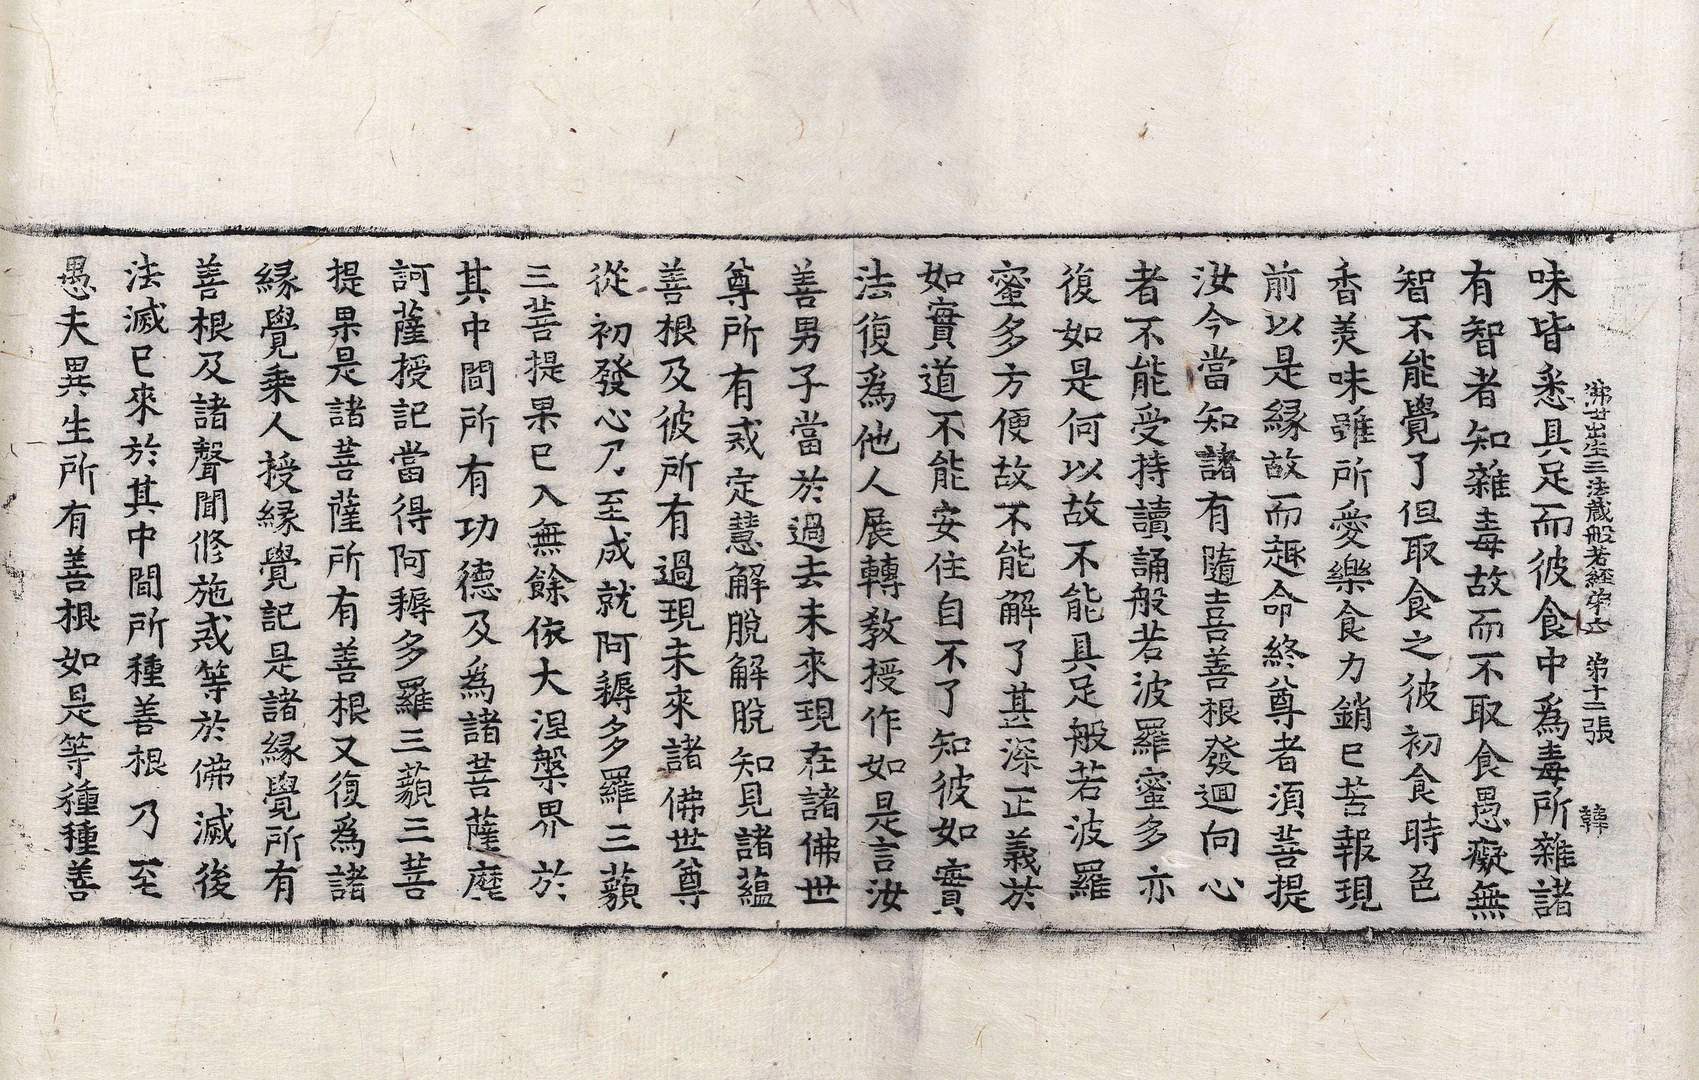 佛母出生三法藏般若經第六 第十二張 韓
味皆悉具足而彼食中爲毒所雜諸
有智者知雜毒故而不取食愚癡無
智不能覺了但取食之彼初食時色
香美味雖所愛樂食力銷已苦報現
前以是縁故而趣命終尊者湏菩提
汝今當知諸有隨喜善根發迴向心
者不能受持讀誦般若波羅蜜多亦
復如是何以故不能具足般若波羅
蜜多方便故不能解了甚深正義於
如實道不能安住自不了知彼如實
法復爲他人展轉教授作如是言汝
善男子當於過去未來現在諸佛世
尊所有戒定慧解脫解脫知見諸蘊
善根及彼所有過現未來諸佛世尊
從初發心乃至成就阿耨多羅三藐
三菩提果已入無餘依大涅槃界於
其中間所有功德及爲諸菩薩摩
訶薩授記當得阿耨多羅三藐三菩
提果是諸菩薩所有善根又復爲諸
縁覺乘人授縁覺記是諸縁覺所有
善根及諸聲聞修施戒等於佛滅後
法滅已來於其中間所種善根乃至
愚夫異生所有善根如是等種種善